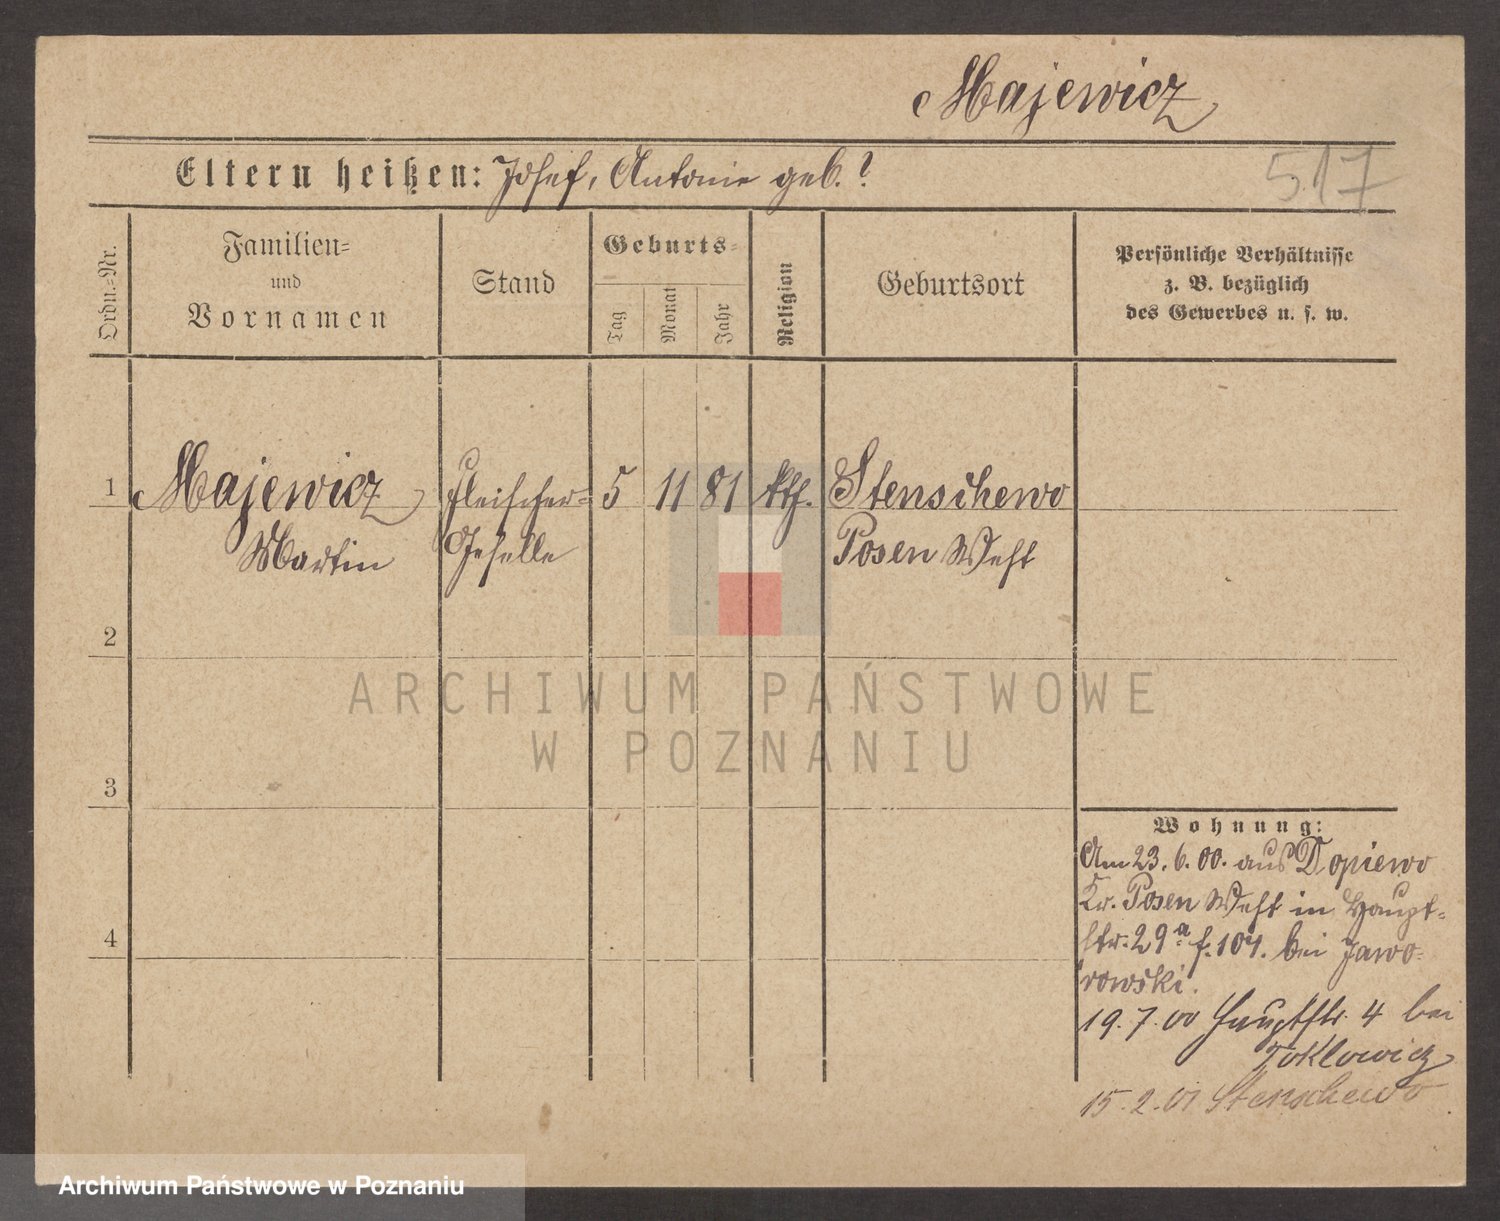 Majewicz
Eltern heißen: Josef, Antonie geb. ?
517
Ordn.-Nr.
Familien-
und
Vornamen
Stand
Geburts-
Tag
Monat
Jahr
Religion
Geburtsort
Persönliche Verhältnisse
z. B. bezüglich
des Gewerbes u. s. w.
1 Majewicz Fleischer- 5 11 81 kth. Stenschewo
Martin Geselle Posen West
2
3
4
Wohnung:
Am 23.6.00. aus Dopiewo
Kr. Posen West in Haupt-
str. 29a f. 104. bei Jawo-
rowski.
19.7.00 Hauptstr. 4 bei
Toklowicz
15.2.01 Stenschewo
ARCHIWUM PAŃSTWOWE
W POZNANIU
Archiwum Państwowe w Poznaniu